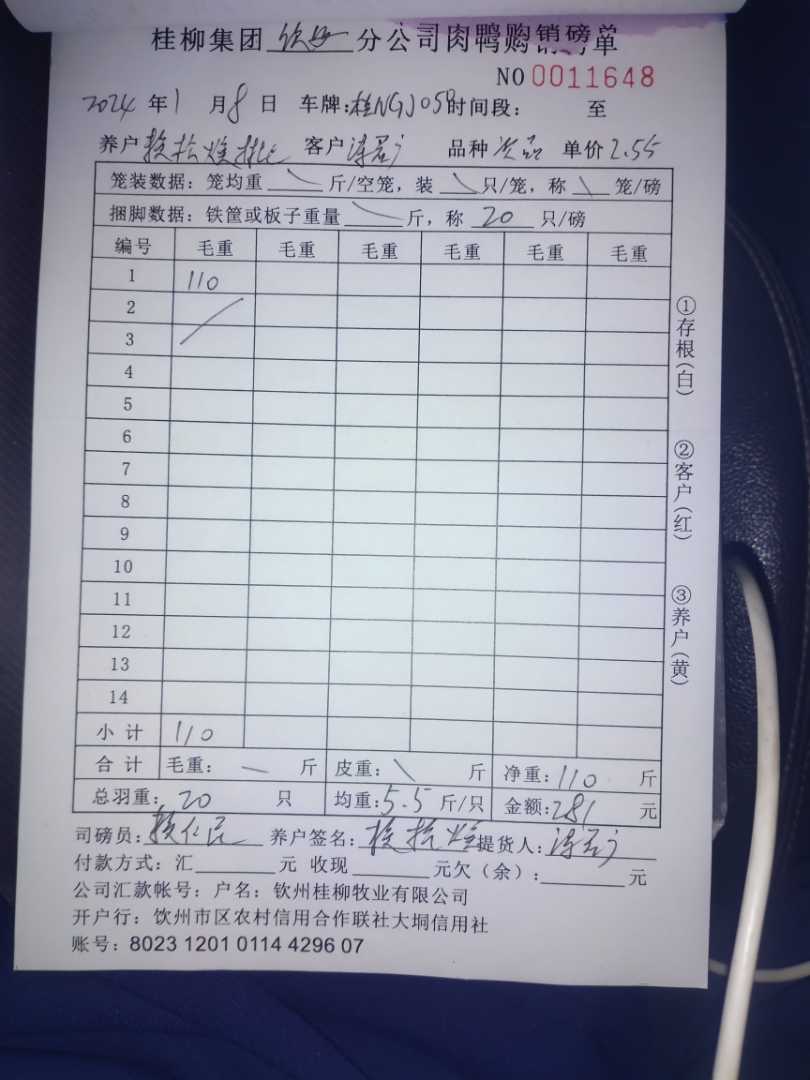 桂柳集团 钦州 分公司肉鸭购销磅单
NO 0011648
2024 年 1 月 8 日 车牌：桂N 时间段： 至
养户 客户 品种 单价 2.55
笼装数据：笼均重 斤/空笼，装 只/笼，称 笼/磅
捆脚数据：铁筐或板子重量 斤，称 20 只/磅
编号 毛重 毛重 毛重 毛重 毛重 毛重
1 110
2
3
4
5
6
7
8
9
10
11
12
13
14
小计 110
合计 毛重： 斤 皮重： 斤 净重：110 斤
总羽重：20 只 均重：5.5 斤/只 金额：281 元
司磅员：赖仁民 养户签名： 提货人：
付款方式：汇 元 收现 元欠（余）： 元
公司汇款帐号：户名：钦州桂柳牧业有限公司
开户行：钦州市区农村信用合作联社大垌信用社
账号：8023 1201 0114 4296 07
①存根（白）
②客户（红）
③养户（黄）